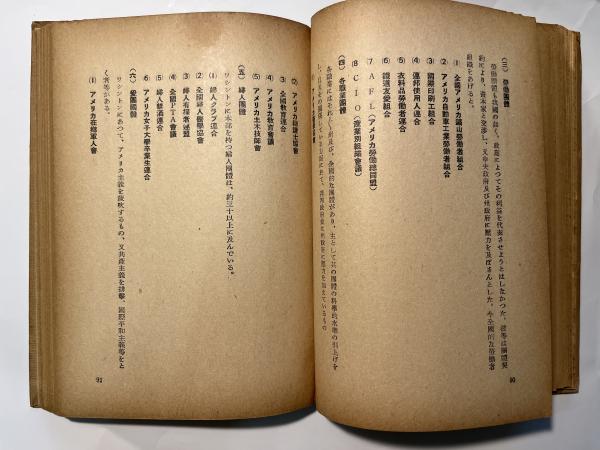 (三) 勞働團體
勞働團體も我國の如く、政黨によつてその利益を代表させようとはしなかつた。彼等は團體契
約により、資本家と交渉し、又中央政府及び州政府に壓力を及ぼさんとした。今全國的な勞働者
組織をあげると。
(1) 全國アメリカ鑛山勞働者組合
(2) アメリカ自動車工業勞働者組合
(3) 國際印刷工組合
(4) 運邦使用人連合
(5) 衣料品勞働者連合
(6) 鐵道友愛組合
(7) AFL(アメリカ勞働總同盟)
(8) CIO(産業別組織會議)
(四) 各職業團體
各職業にはそれ〲州及び、全國的な團體があり、主として其の團體の科學的水準の引上げを
90
(2) アメリカ
(3) 全國教育連合
(4) アメリカ教育會議
(5) アメリカ土木技師會
(五) 婦人團體
ワシントンに本部を持つ婦人團體は、約三十以上に及んでいる。
(1) 婦人クラブ連合
(2) 全國婦人
(3) 婦人有權者連盟
(4) 全國PTA會議
(5) 婦人禁酒連合
(6) アメリカ女子大學卒業生連合
(六) 愛國團體
ワシントンにあつて、アメリカ主義を鼓吹するもの、又共産主義を排撃、國際平和主義等をと
く會等がある。
(1) アメリカ在鄕軍人會
91